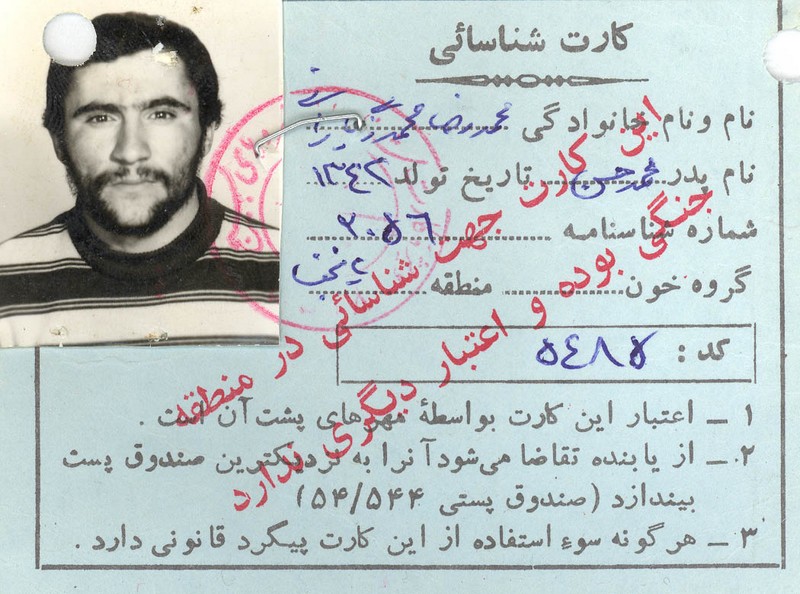 کارت شناسائی
نام و نام خانوادگی محمدرضا محمدی
نام پدر محمدحسن تاریخ تولد ۱۳۴۲
شماره شناسنامه ۳۰۵۶
گروه خون منطقه
کد : ۵۴۸۵
۱ ـ اعتبار این کارت بواسطهٔ مهرهای پشت آن است .
۲ ـ از یابنده تقاضا می‌شود آنرا به نزدیکترین صندوق پست
بیندازد (صندوق پستی ۵۴/۵۴۴)
۳ ـ هرگونه سوءِ استفاده از این کارت پیگرد قانونی دارد .
این کارت جهت شناسائی در منطقه
جنگی بوده و اعتبار دیگری ندارد